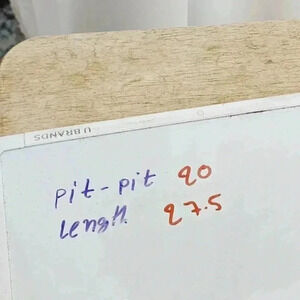 U BRANDS
pit-pit 20
Length 27.5